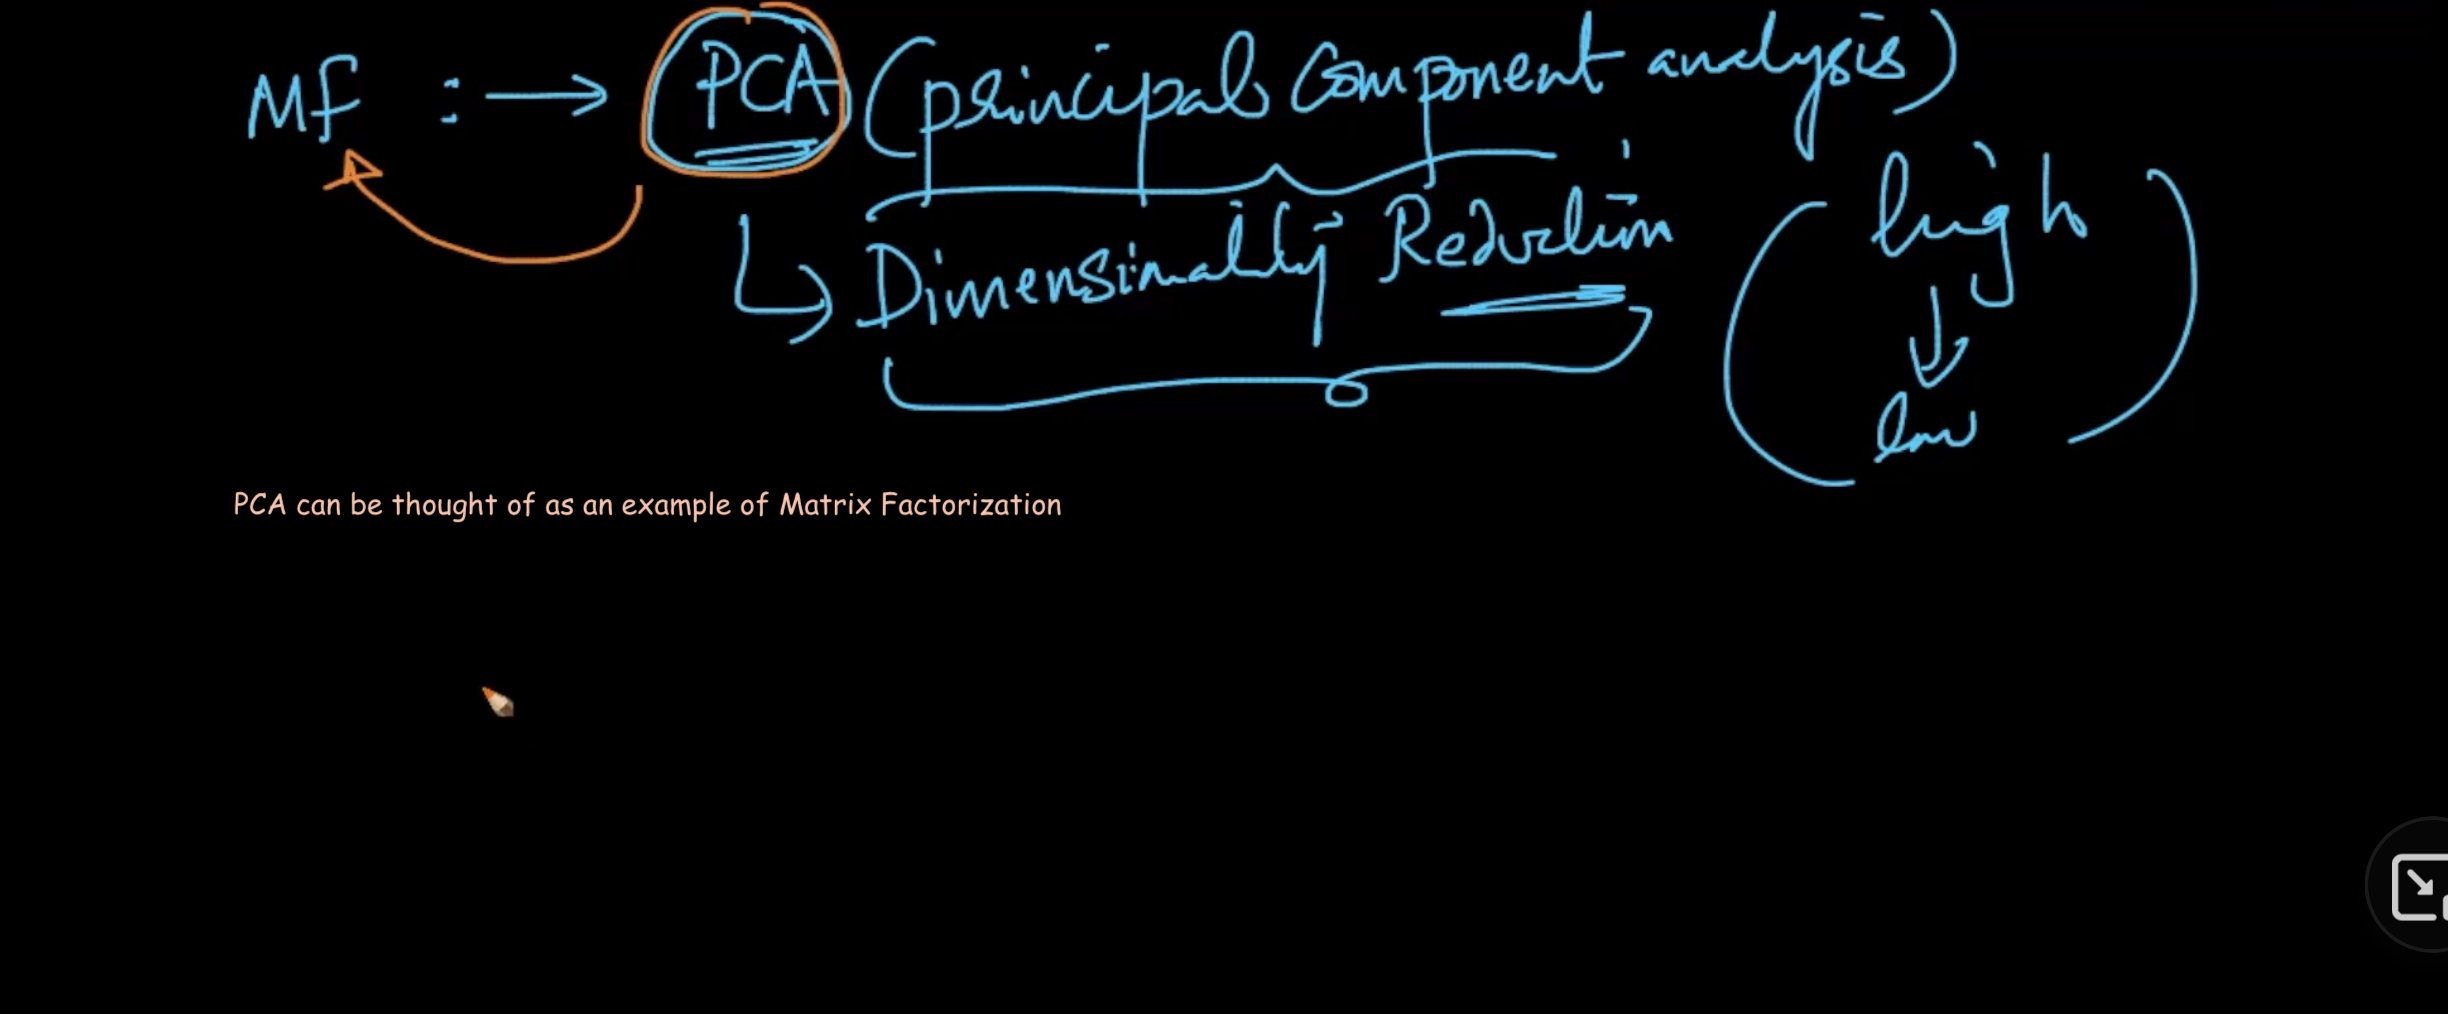 MF : → PCA (principal component analysis)
↳ Dimensionality Reduction ( high ↓ low )
PCA can be thought of as an example of Matrix Factorization